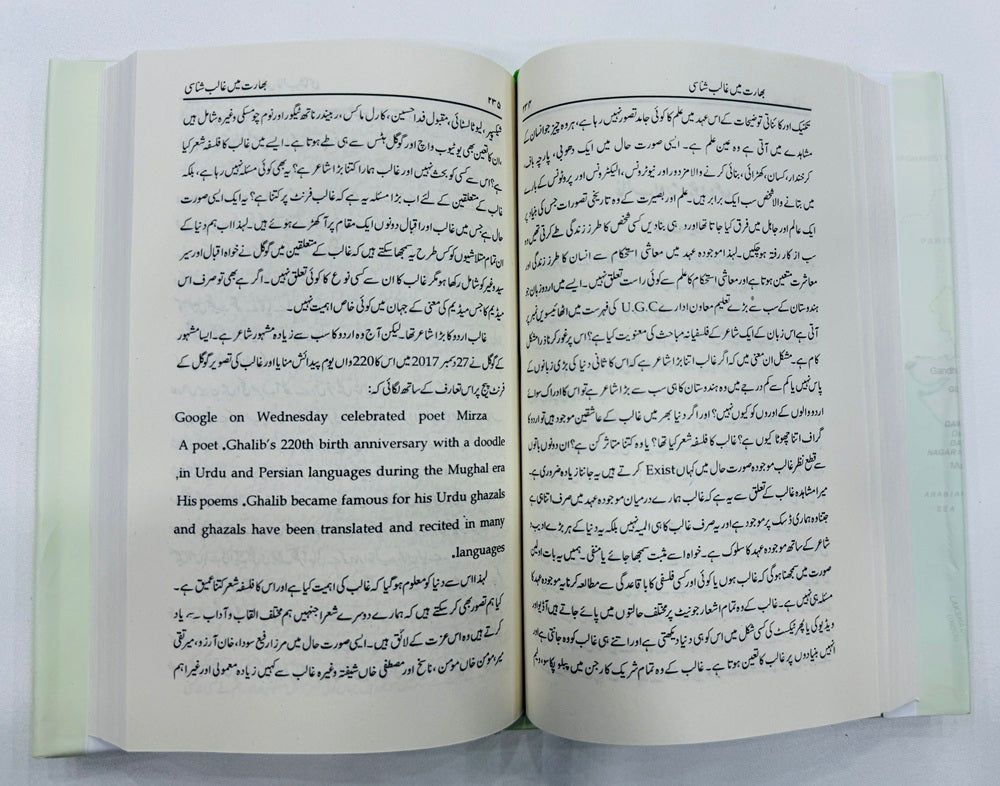 بھارت میں غالب شناسی
۲۳۴
تکنیک اور کائناتی توضیحات کے اس عہد میں علم کا کوئی جامد تصور نہیں رہا ہے، ہر وہ چیز جو انسان کے
مشاہدے میں آتی ہے وہ عین علم ہے۔ ایسی صورت حال میں ایک دھوبی، پارچہ باف،
کرخندار، کسان، کھڑائی، بنائی کرنے والا مزدور اور نیوٹرونس، الیکٹرونس اور پروٹونس کے بارے
میں بتانے والا شخص سب ایک برابر ہیں۔ علم اور بصیرت کے وہ تاریخی تصورات جس کی بنیاد پر
ایک عالم اور جاہل میں فرق کیا جاتا تھا اور وہ ہی بنادیں کسی شخص کا طرز زندگی طے کرتی تھیں وہ
سب از کار رفتہ ہوچکیں۔ لہٰذا موجودہ عہد میں معاشی استحکام سے انسان کا طرز زندگی اور
معاشرت متعین ہوتا ہے اور معاشی استحکام کا علم سے کوئی راست تعلق نہیں۔ ایسے میں اردو زبان جو
ہندوستان کے سب سے بڑے تعلیم معاون ادارے U.G.C کی فہرست میں اٹھائیسویں نمبر پر
آتی ہے اس زبان کے ایک شاعر کے فلسفیانہ مباحث کی معنویت کیا ہے؟ اس پر غور کرنا ذرا مشکل
کام ہے۔ مشکل ان معنی میں کہ اگر غالب اتنا بڑا شاعر ہے کہ اس کا ثانی دنیا کی بڑی زبانوں کے
پاس نہیں یا کم سے کم درجے میں وہ ہندوستان کا ہی سب سے بڑا شاعر ہے تو اس کا ادراک سوائے
اردو والوں کے اوروں کو کیوں نہیں؟ اور اگر دنیا بھر میں غالب کے عاشقین موجود ہیں تو اردو کا
گراف اتنا چھوٹا کیوں ہے؟ غالب کا فلسفہ شعر کیا تھا؟ یا وہ کتنا متاثر کن ہے؟ ان دونوں باتوں
سے قطع نظر غالب موجودہ صورت حال میں کہاں Exist کرتے ہیں یہ جاننا زیادہ ضروری ہے۔
میرا مشاہدہ غالب کے تعلق سے یہ ہے کہ غالب ہمارے درمیان موجودہ عہد میں صرف اتنا ہی ہے
جتنا وہ ہماری ڈسک پر موجود ہے اور یہ صرف غالب کا ہی المیہ نہیں بلکہ یہ دنیا کے ہر بڑے ادیب و
شاعر کے ساتھ موجودہ عہد کا سلوک ہے۔ خواہ اسے مثبت سمجھا جائے یا منفی۔ ہمیں یہ بات اولین
صورت میں سمجھنا ہوگی کہ غالب ہوں یا کوئی اور کسی فلسفی کا با قاعدگی سے مطالعہ کرنا یہ موجودہ عہد کا
مسئلہ ہی نہیں ہے۔ غالب کے وہ تمام اشعار جو نیٹ پر مختلف حالتوں میں پائے جاتے ہیں آڈیو اور
ویڈیو کی یا پھر ٹیکسٹ کی کسی شکل میں اس کو ہی دنیا دیکھتی ہے اور اتنے ہی غالب کو وہ جانتی ہے اور
انہیں بنیادوں پر غالب کا تعین ہوتا ہے۔ غالب کے وہ تمام شریک کار جن میں پیبلو پکاسو، ولیم
بھارت میں غالب شناسی
۲۳۵
شیکسپیر، لیو ٹالسٹائی، مقبول فدا حسین، کارل مارکس، ربیندر ناتھ ٹیگور اور نوم چوسکی وغیرہ شامل ہیں
ان کا تعین بھی یوٹیوب واچ اور گوگل ہٹس سے ہی طے ہوتا ہے۔ ایسے میں غالب کا فلسفہ شعر کیا
ہے؟ اس سے کسی کو بحث نہیں اور غالب ہمارا کتنا بڑا شاعر ہے؟ یہ بھی کوئی مسئلہ نہیں رہا ہے، بلکہ
غالب کے متعلقین کے لئے اب بڑا مسئلہ یہ ہے کہ غالب فرنٹ پر کتنا ہے؟ یہ ایک ایسی صورت
حال ہے جس میں غالب اور اقبال دونوں ایک مقام پر آکھڑے ہوئے ہیں۔ لہٰذا اب ہم دنیا کے
ان تمام متلاشیوں کو کس طرح یہ سمجھا سکتے ہیں کہ غالب کے متعلقین میں گوگل نے خواہ اقبال اور سر
سید وغیرہ کو شامل رکھا ہو مگر غالب کا ان سے کسی نوع کا کوئی تعلق نہیں۔ اگر ہے بھی تو صرف اس
میڈیم کا جس میڈیم کی معنی کے جہان میں کوئی خاص اہمیت نہیں۔
غالب اردو کا بڑا شاعر تھا۔ لیکن آج وہ اردو کا سب سے زیادہ مشہور شاعر ہے۔ ایسا مشہور
کے گوگل نے 27 دسمبر 2017 میں اس کا 220 واں یوم پیدائش منایا اور غالب کی تصویر گوگل کے
فرنٹ پیج پر اس تعارف کے ساتھ لگائی کہ:
Google on Wednesday celebrated poet Mirza
A poet .Ghalib's 220th birth anniversary with a doodle
,in Urdu and Persian languages during the Mughal era
His poems .Ghalib became famous for his Urdu ghazals
and ghazals have been translated and recited in many
.languages
لہٰذا اس سے دنیا کو معلوم ہو گیا کہ غالب کی اہمیت کیا ہے اور اس کا فلسفہ شعر کتنا عمیق ہے۔
کیا ہم تصور بھی کر سکتے ہیں کہ ہمارے دوسرے شعرا جنہیں ہم مختلف القاب و آداب سے یاد
کرتے ہیں وہ اس عزت کے لائق ہیں۔ ایسی صورت حال میں مرزا رفیع سودا، خان آرزو، میر تقی
میر، مومن خاں مومن، ناسخ اور مصطفی خاں شیفتہ وغیرہ غالب سے کہیں زیادہ معمولی اور غیر اہم